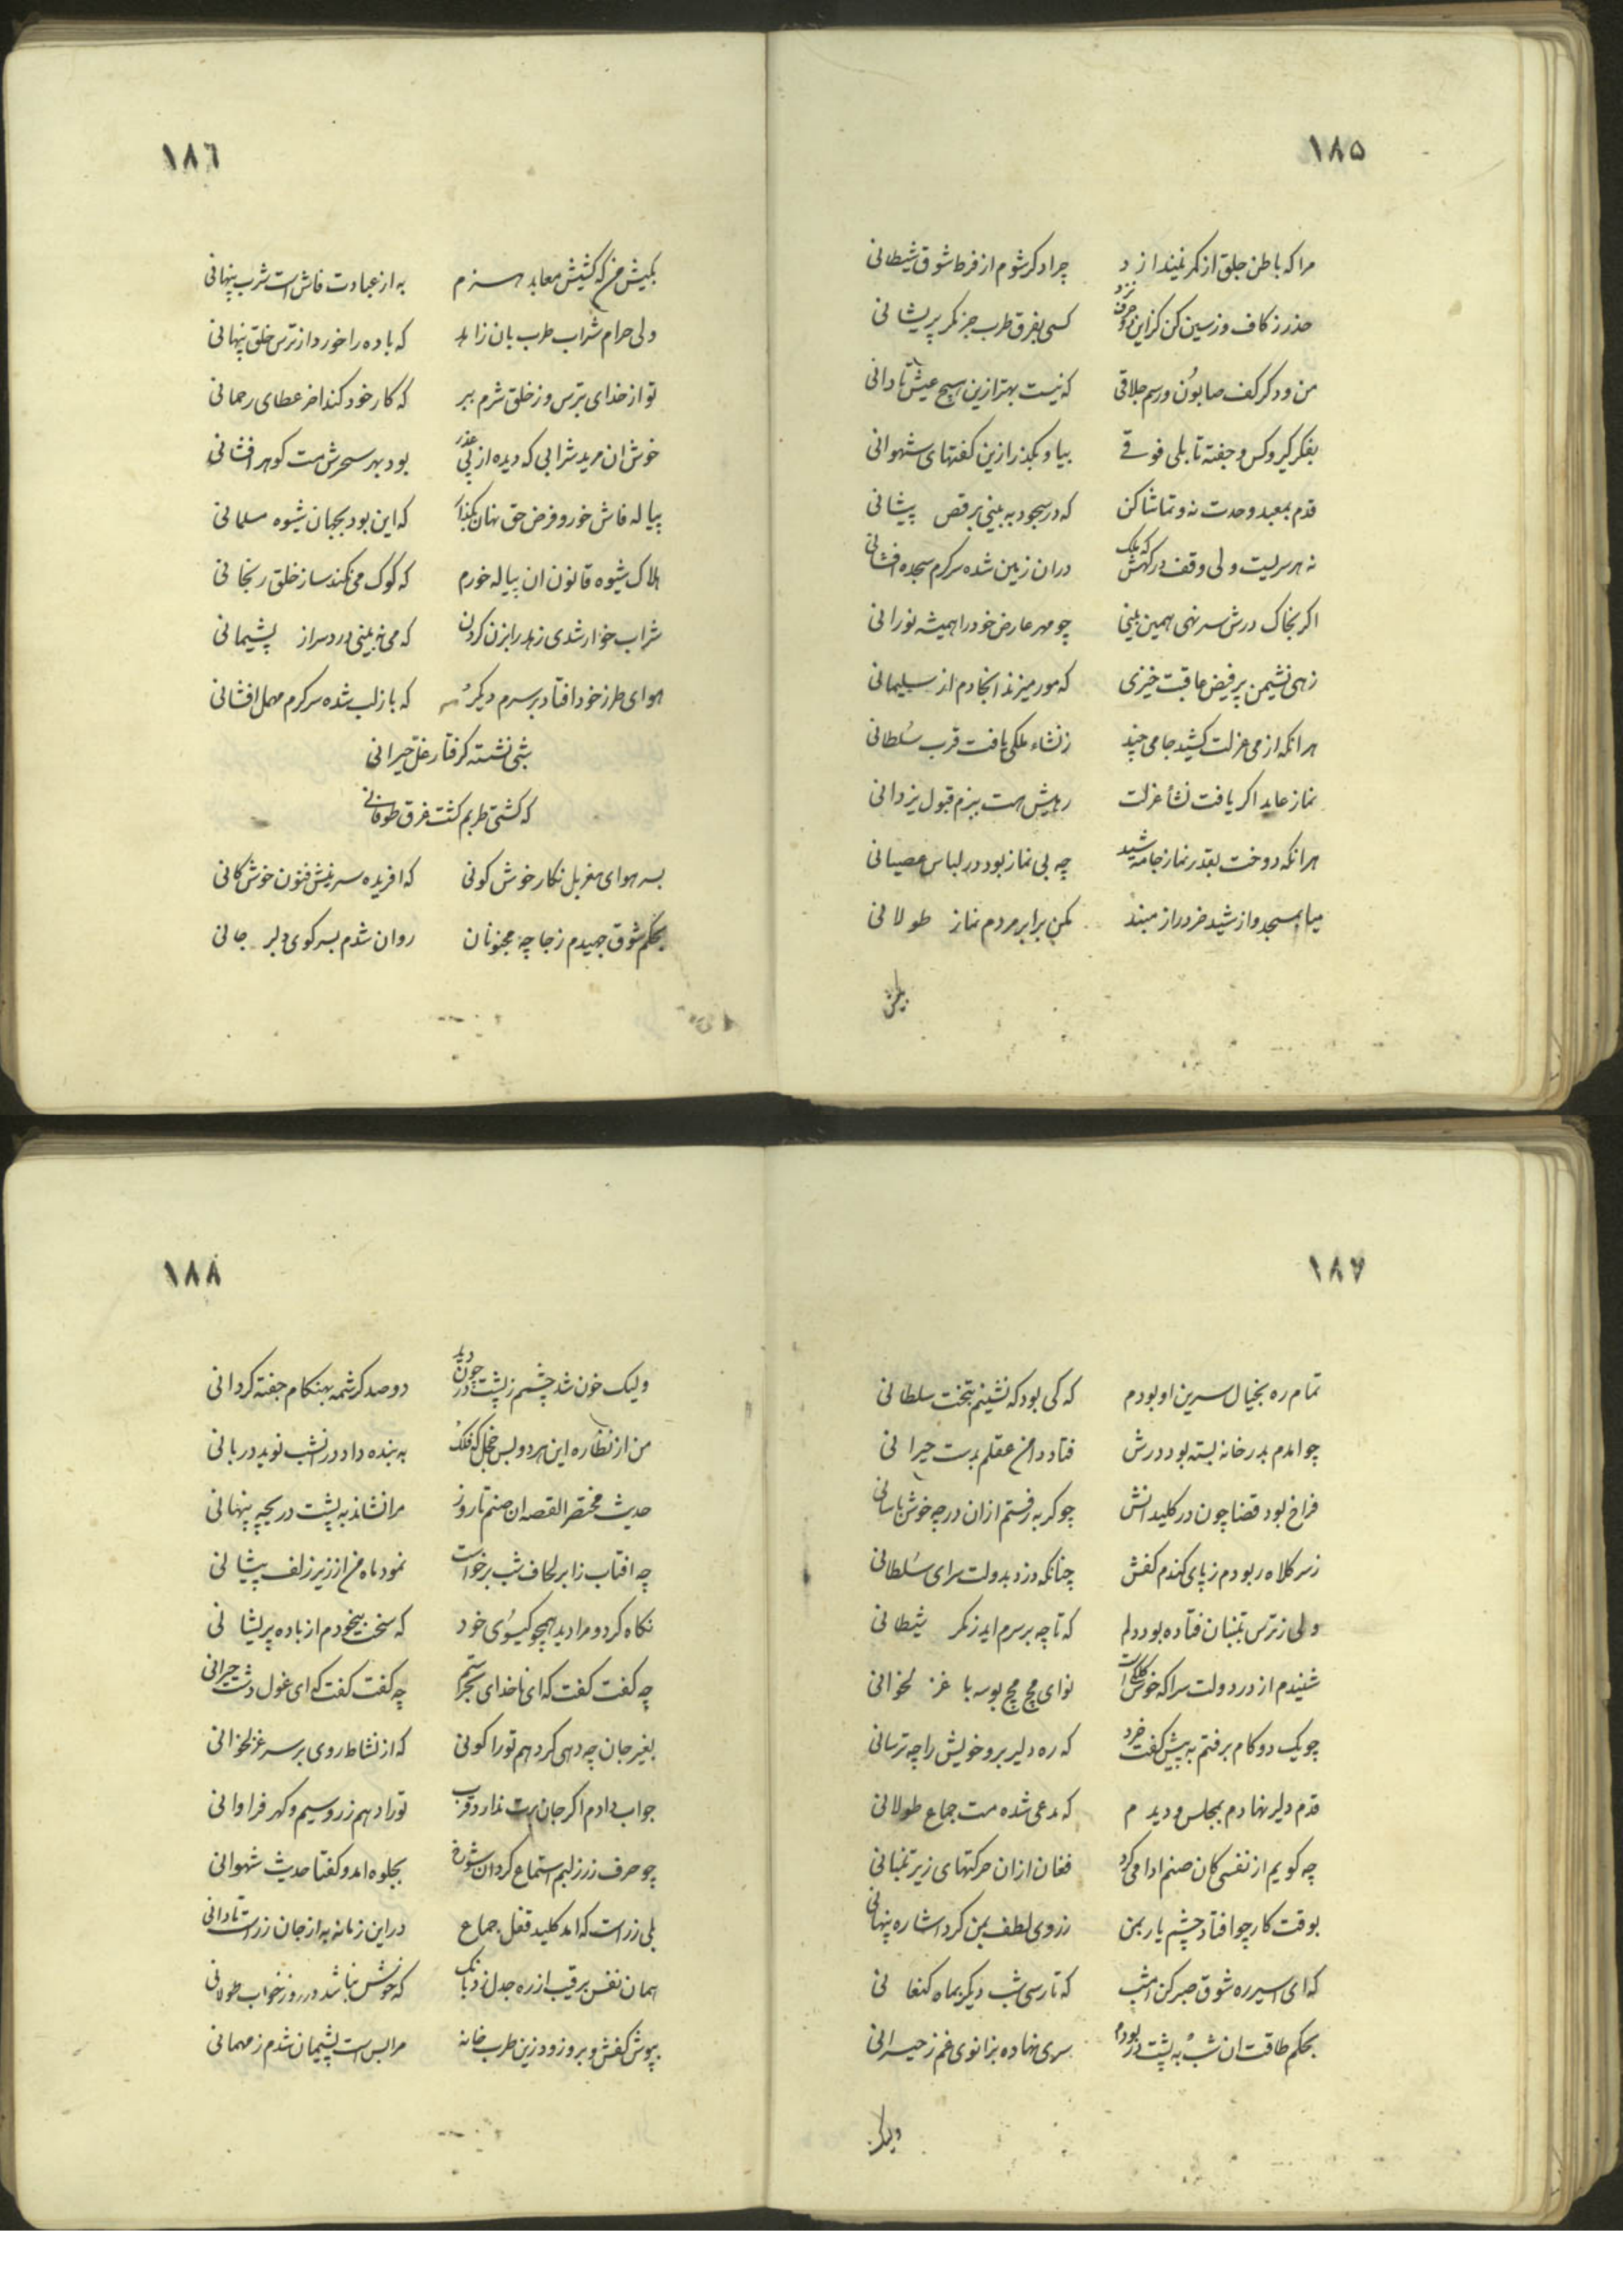 ١٨٥
مرا که باطن جلق از کمر نمیندازد چرا دکر شوم از فرط شوق شیطانی
حذر ز کاف و ز سین کن کزین دو حرف نزد کسی بفرق طرب جز کمر پریشانی
من و دکر کف صابون و رسم جلاقی که نیست بهتر ازین هیچ عیش تا دانی
بفکر کیر و کس و جفته تا بلی فوقی بیا و بکذر ازین کفتهای شهوانی
قدم بمعبد وحدت نه و تماشا کن که در سجود به بینی برقص پیشانی
نه هر سریست ولی وقف درکهش که ملک دران زمین شده سرکرم سجده افشانی
اکر بخاک درش سر نهی همین بینی چو مهر عارض خود را همیشه نورانی
زهی نشیمن پر فیض عاقبت خیزی که مور میزند انجا دم از سلیمانی
هر انکه از می عزلت کشید جامی چند ز نشاء ملکی یافت قرب سُلطانی
نماز عابد اکر یافت نشأ عزلت رهیش هست ببزم قبول یزدانی
هر انکه دوخت بقدر نماز جامه شید چه بی نماز بود در لباس عصیانی
میا بمسجد و از شید خر دراز مبند مکن برابر مردم نماز طولانی
بکیش
١٨٦
بکیش من که کشیش معابد هستزم به از عبادت فاش است شرب پنهانی
ولی حرام شراب طرب بان زاهد که باده را خورد از ترس خلق پنهانی
تو از خدای بترس و ز خلق شرم مبر که کار خود کند اخر عطای رحمانی
خوش ان مرید شرابی که دیده از پی عذر بود بهر سحرش مست کوهر افشانی
پیاله فاش خور و فرض حق نهان بکذار که این بود بجهان شیوه مسلمانی
هلاک شیوه قانون ان پیاله خورم که کوک می نکند ساز خلق رنجانی
شراب خوار شدی زهد را بزن کردن که می نبینی دردسر از پشیمانی
هوای طرز خود افتاد بر سرم دیکر که باز لب شده سرکرم مهمل افشانی
شبی نشسته کرفتار غلّ حیرانی
که کشتی طربم کشت غرق طوفانی
بسر هوای مغربل نکار خوش کونی که افریده سرینش فنون خوش کانی
بحکم شوق جهیدم ز جا چه مجنونان روان شدم بسر کوی دلبر جانی
١٨٧
تمام ره بخیال سرین او بودم که کی بود که نشینم بتخت سلطانی
چو امدم بدر خانه بسته بود درش فتاد دامن عقلم بدست حیرانی
فراخ بود قضا چون در کلیدانش چو کربه رفتم ازان درچه خوش باسانی
ز سر کلاه ربودم ز پای کندم کفش چنانکه دزد بدولت سرای سُلطانی
ولی ز ترس بتنبان فتاده بود دلم که تا چه بر سرم اید ز مکر شیطانی
شنیدم از در دولت سرا که خوش کلکیست نوای مچ مچ بوسه با غزلخوانی
چو یک دو کام برفتم به پیش کفت خرد که ره دلیر برو خویش را چه ترسانی
قدم دلیر نهادم بمجلس و دیدم که مدعی شده مست جماع طولانی
چه کویم از نفسی کان صنم ادا می کرد فغان ازان حرکتهای زیر تنبانی
بوقت کار چو افتاد چشم یار بمن ز روی لطف بمن کرد اشاره پنهانی
که ای اسیر ره شوق صبر کن امشب که تا رسی شب دیکر بماه کنعانی
بحکم طاقت ان شب به پشت در بودم سری نهاده بزانوی غم ز حیرانی
ولیک
١٨٨
ولیک خون شد چشمم ز پشت در چون دید دو صد کرشمه بهنکام جفته کردانی
من از نظاره این هر دو بس خجل که فلک به بنده داد در انشب نوید دربانی
حدیث مختصر القصه ان صنم تا روز مرا نشاند به پشت دریچه پنهانی
چه افتاب ز ابر لحاف شب برخواست نمود ماه من از زیر زلف پیشانی
نکاه کرد و مرا دید همچو کیسُوی خود که سخت بیخودم از باده پریشانی
چه کفت کفت که ای ناخدای بحر ستم چه کفت کفت که ای غول دشت حیرانی
بغیر جان چه دهی کر دهم تو را کونی که از نشاط روی بر سر غزلخوانی
جواب دادم اکر جان برت ندارد قرب تورا دهم زر و سیم و کهر فراوانی
چو حرف زر ز لبم استماع کرد ان شوخ بجلوه امد و کفتا حدیث شهوانی
بلی زر است که امد کلید قفل جماع در این زمانه به از جان زر است تا دانی
همان نفس برقیب از ره جدل زد بانک که خوش نباشد در روز خواب طولانی
بپوش کفش و برو زود زین طرب خانه مرا بس است پشیمان شدم ز مهمانی